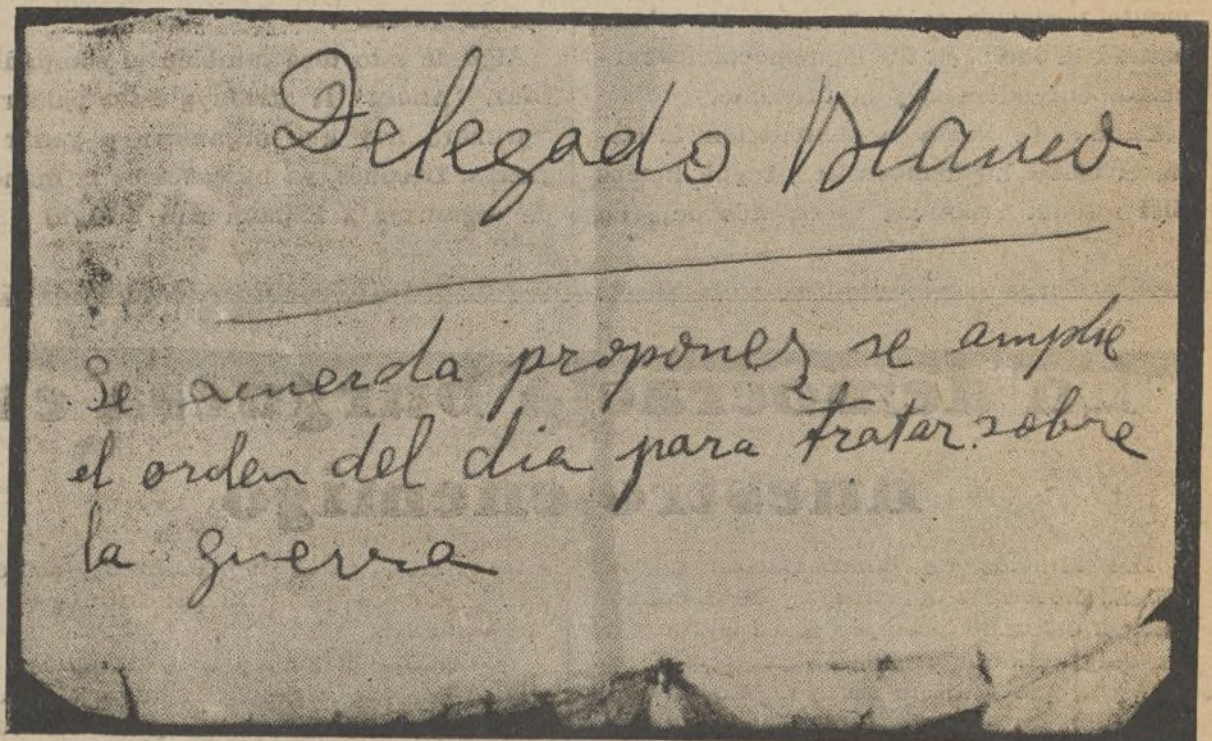 Delegado Blanco
Se acuerda proponer se amplie
el orden del dia para tratar sobre
la guerra